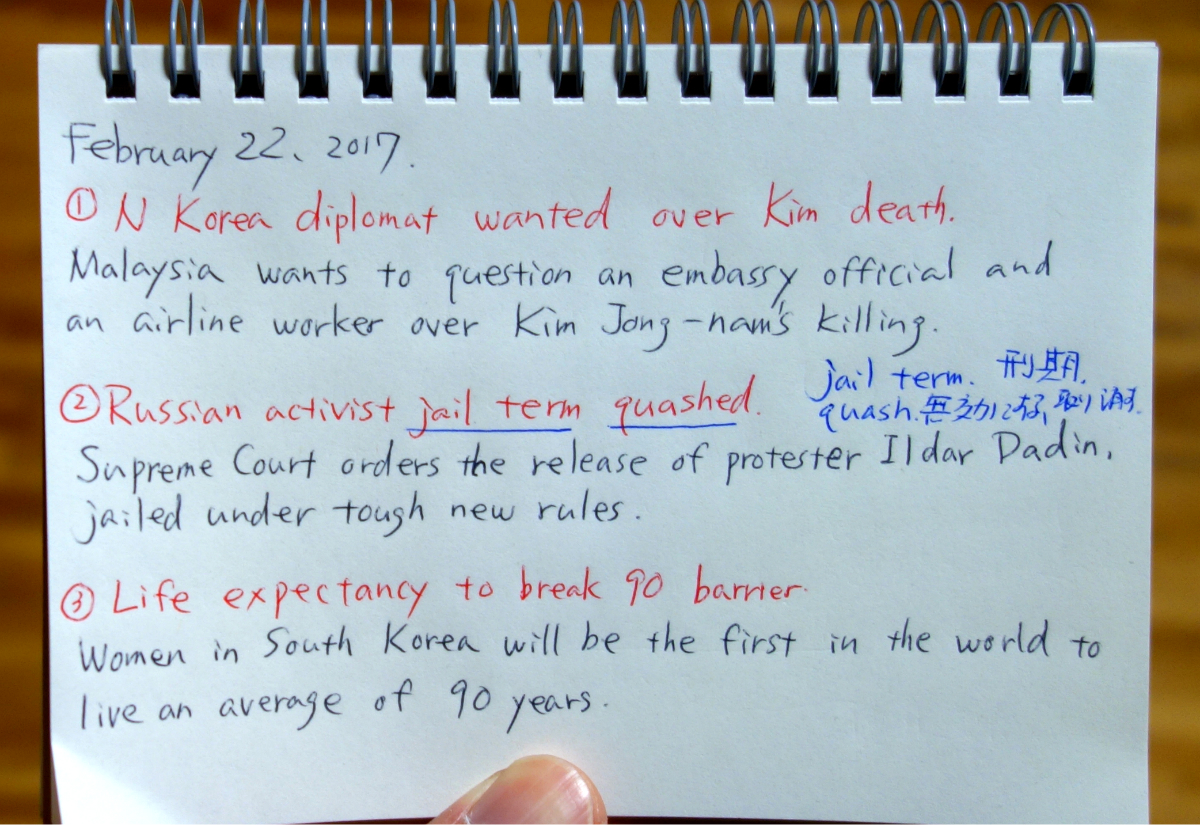 February 22、2017.
① N Korea diplomat wanted over Kim death.
Malaysia wants to question an embassy official and
an airline worker over Kim Jong-nam's killing.
jail term. 刑期.
quash.無効にする,取り消す.
②Russian activist jail term quashed.
Supreme Court orders the release of protester Ildar Dadin,
jailed under tough new rules.
③ Life expectancy to break 90 barrier.
Women in South Korea will be the first in the world to
live an average of 90 years.